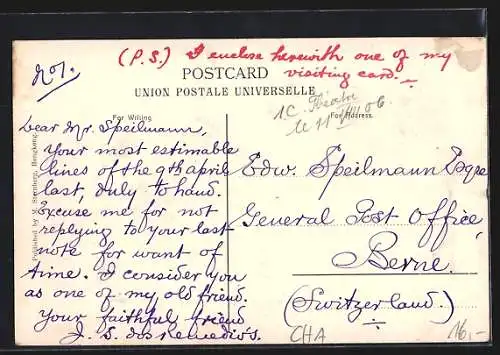 No 1.
(P.S.) I enclose herewith one of my
visiting card.
POSTCARD
UNION POSTALE UNIVERSELLE
For Writing
For Address.
1C Théatre
le 11 VIII 06.
Dear Mr. Speilmann,
Your most estimable
lines of the 9th april
last, duly to hand.
Excuse me for not
replying to your last
note for want of
time. I consider you
as one of my old friend.
Your faithful friend
J. S. dos Remedio's.
Edw. Speilmann Esqre
General Post Office
Berne.
(Switzerland.)
CHA
16,-
Published by M. Sternberg, Hongkong.